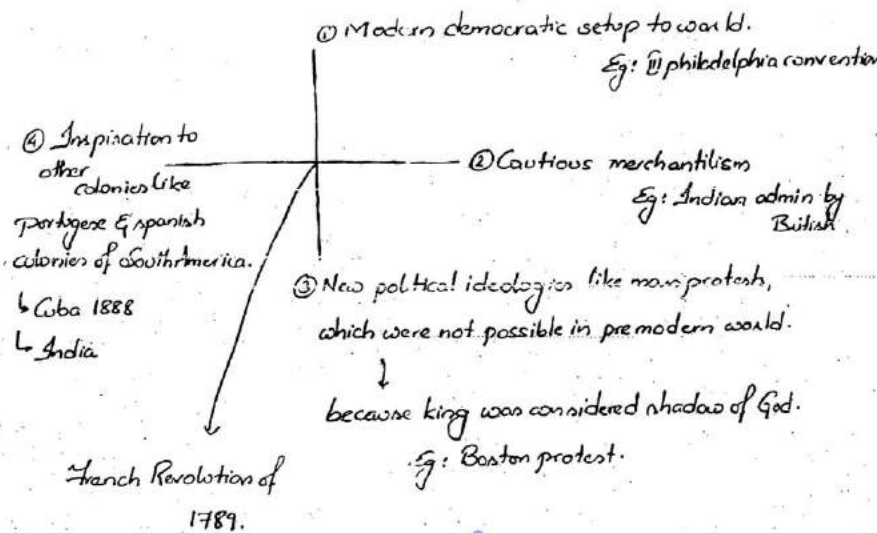 ① Modern democratic setup to world.
Eg: III philedelphia convention
② Cautious merchantilism
Eg: Indian admin by
British
③ New political ideologies like mass protests,
which were not possible in premodern world.
because king was considered shadow of God.
Eg: Boston protest.
④ Inspiration to
other
colonies like
portugese & spanish
colonies of South America.
↳ Cuba 1888
↳ India
French Revolution of
1789.